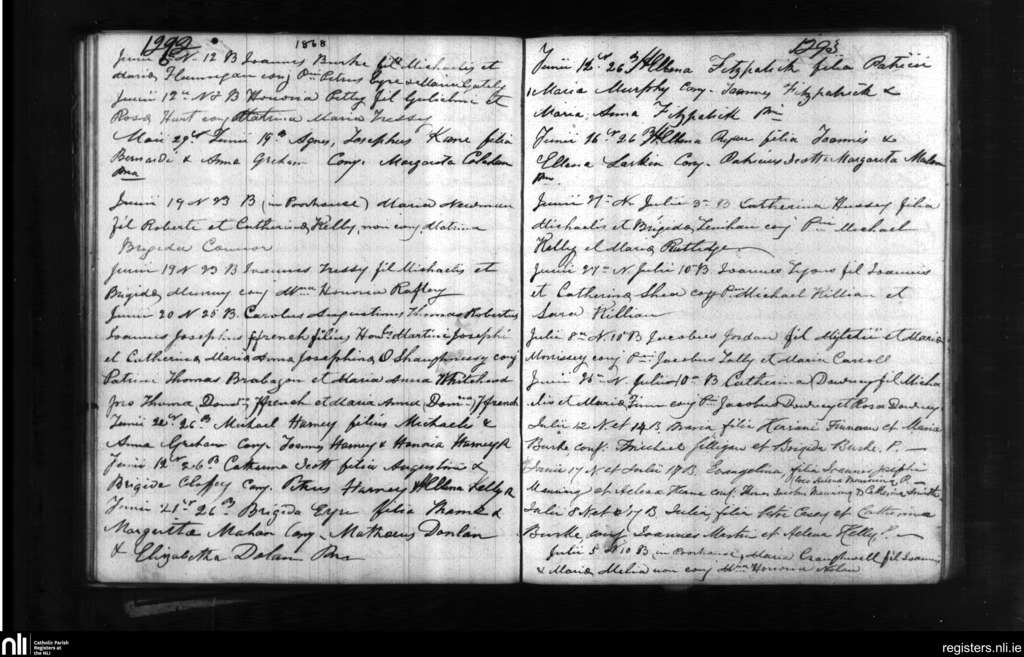 1292
1868
Junii 6 N. 12 B Joannes Burke fil Michaelis et
Maria Flannegan conj Pni Petrus Eyre et Maria Gately
Junii 12 N & B Honoria Petty fil Gulielmi et
Rosa Hurt conj Matrina Maria Tressy
Maii 29 Junii 19 B Agnes, Josephus Kane filia
Bernardi & Anna Greham Conj. Margarita Calahan
Pna
Junii 19 N 23 B (in Poorhouse) Maria Newman
fil Roberti et Catherina Kelly, non conj Matrina
Brigida Connor
Junii 19 N 23 B Joannes Tressy fil Michaelis et
Brigida Murray conj Mna Honoria Raftery
Junii 20 N 25 B. Carolus Augustinus Thomas Robertus
Joannes Josephus ffrench filius Martini Josephi
et Catherina Maria Anna Josephina O Shaughnessy conj
Patrini Thomas Brabazon et Maria Anna Whitehead
pro Thoma ffrench et Maria Anna ffrench
Junii 22 26 B Michael Harney filius Michaelis &
Anna Greham Conj. Joannes Harney & Honoria Harney
Junii 12 26 B Catherina Scott filia Augustini &
Brigida Claffey Conj. Petrus Harney & Hellena Kelly
Junii 21 26 B Brigida Eyre filia Thoma &
Margaritta Mahan Conj. Matheus Donlan
& Elizabetha Dolan Pni
1293
Junii 12 26 B Hellena Fitzpatick filia Patricii
Maria Murphy Conj. Joannes Fitzpatrick &
Maria, Anna Fitzpatick Pni
Junii 16 26 B Hellena Ryan filia Joannis &
Ellena Larkin Conj. Patricius Scott & Margarita
Pni
Junii 27 N Julii 3 B Catherina Hussey filia
Michaelis et Brigida Lenihan conj Pni Michael
Kelly et Maria Rutledge
Junii 27 N Julii 10 B Joannes Lyons fil Joannis
et Catherina Shea conj Pni Michael Killian et
Sara Killian
Julii 8 N 10 B Jacobus Jordan fil et Maria
Morrissey conj Pni Jacobus Tully et Maria Carroll
Junii N. Julii 10 B Catherina Downey fil Micha
elis et Maria Finn conj Pni Jacobus Downey et Rosa Downey
Julii 12 N et 14 B Maria filia Finnean et Maria
Burke conj. Michael et Brigida Burke. P.
Junii 17 N et Julii 17 B. Evangelina filia Joannes Joseph
Manning et Helena Keane conj.
Julii 8 N et 17 B Julia, filia Petri Casey et Catherina
Burke, conj Joannes Martin et Helena Kelly P.
Julii 5 N 10 B (in Poorhouse) Maria Craughwell fil Joannis
& Maria Melia non conj Mna Honoria Nolan
nli
Catholic Parish
Registers at
the NLI
registers.nli.ie